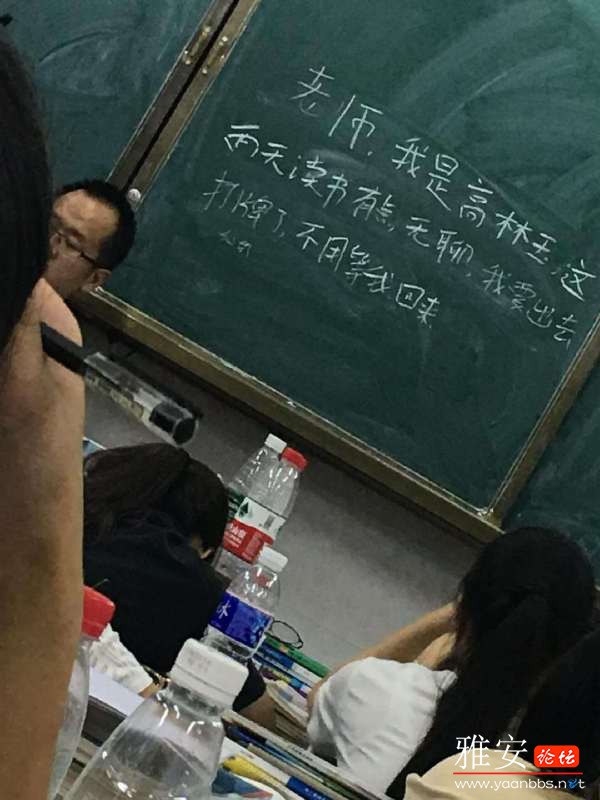 老师,我是高林玉,这
两天读书有点无聊,我要出去
打牌了,不用等我回来
冰
雅安论坛
www.yaanbbs.net